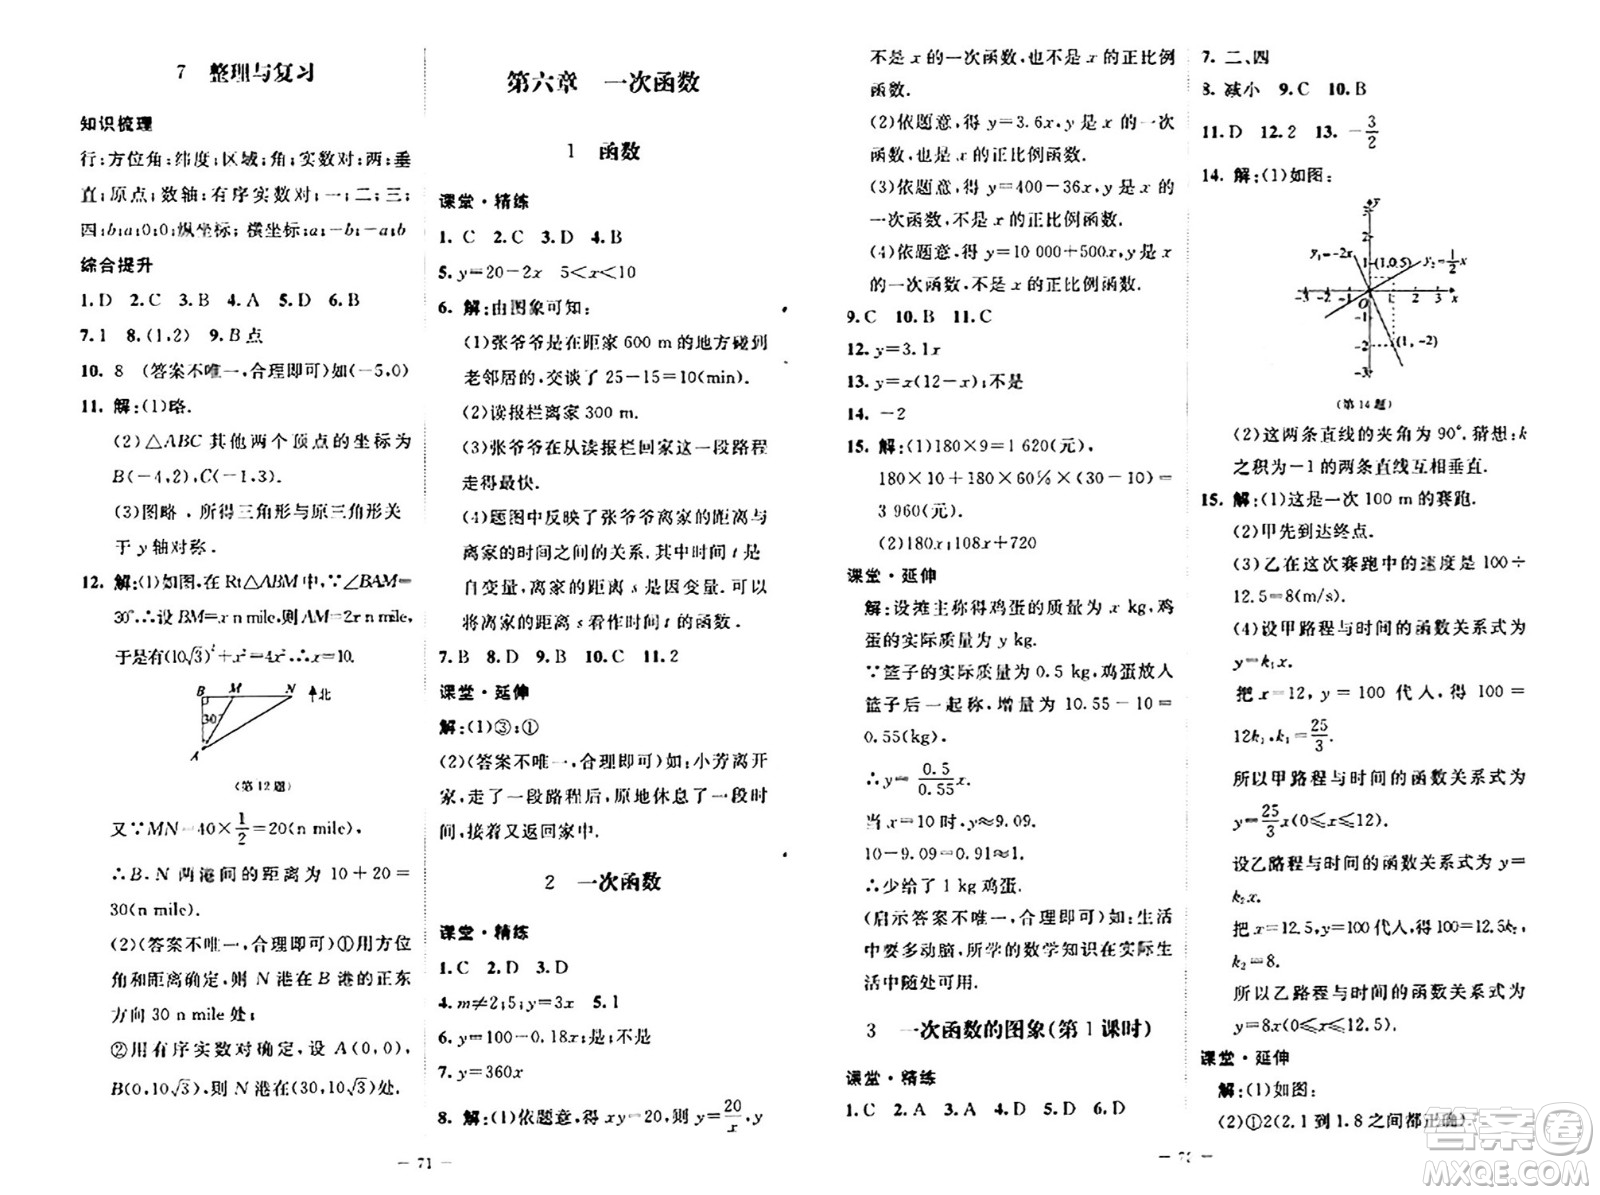 7 整理与复习
知识梳理
行;方位角;纬度;区域;角;实数对;两;垂
直;原点;数轴;有序实数对;一;二;三;
四;b;a;0;0;纵坐标;横坐标;a;-b;-a;b
综合提升
1. D 2. C 3. B 4. A 5. D 6. B
7. 1 8. (1,2) 9. B 点
10. 8 (答案不唯一,合理即可)如(-5,0)
11. 解:(1)略.
(2)△ABC 其他两个顶点的坐标为
B(-4,2),C(-1,3).
(3)图略,所得三角形与原三角形关
于 y 轴对称.
12. 解:(1)如图,在 Rt△ABM 中,∵∠BAM=
30°∴设 BM=x n mile,则 AM=2x n mile,
于是有(10√3)²+x²=4x²∴x=10.
B M N 北
30°
A
(第12题)
又∵MN=40×1/2=20(n mile),
∴B,N 两港间的距离为 10+20=
30(n mile).
(2)(答案不唯一,合理即可)①用方位
角和距离确定,则 N 港在 B 港的正东
方向 30 n mile 处;
②用有序实数对确定,设 A(0,0),
B(0,10√3),则 N 港在(30,10√3)处.
— 71 —
第六章 一次函数
1 函数
课堂·精练
1. C 2. C 3. D 4. B
5. y=20-2x 5<x<10
6. 解:由图象可知:
(1)张爷爷是在距家 600 m 的地方碰到
老邻居的,交谈了 25-15=10(min).
(2)读报栏离家 300 m.
(3)张爷爷在从读报栏回家这一段路程
走得最快.
(4)题图中反映了张爷爷离家的距离与
离家的时间之间的关系.其中时间 t 是
自变量,离家的距离 s 是因变量.可以
将离家的距离 s 看作时间 t 的函数.
7. B 8. D 9. B 10. C 11. 2
课堂·延伸
解:(1)③;①
(2)(答案不唯一,合理即可)小芳离开
家,走了一段路程后,原地休息了一段时
间,接着又返回家中.
2 一次函数
课堂·精练
1. C 2. D 3. D
4. m≠2;5;y=3x 5. 1
6. y=100-0.18x;是;不是
7. y=360x
8. 解:(1)依题意,得 xy=20,则 y=20/x,y
不是 x 的一次函数,也不是 x 的正比例
函数.
(2)依题意,得 y=3.6x,y 是 x 的一次
函数,也是 x 的正比例函数.
(3)依题意,得 y=400-36x,y 是 x 的
一次函数,不是 x 的正比例函数.
(4)依题意,得 y=10 000+500x,y 是 x
的一次函数,不是 x 的正比例函数.
9. C 10. B 11. C
12. y=3.1x
13. y=x(12-x);不是
14. -2
15. 解:(1)180×9=1 620(元),
180×10+180×60%×(30-10)=
3 960(元).
(2)180x;108x+720
课堂·延伸
解:设摊主称得鸡蛋的质量为 x kg,鸡
蛋的实际质量为 y kg.
∵篮子的实际质量为 0.5 kg,鸡蛋放人
篮子后一起称,增量为 10.55-10=
0.55(kg).
∴y=0.5/0.55x.
当 x=10 时,y≈9.09.
10-9.09=0.91≈1.
∴少给了 1 kg 鸡蛋.
(启示答案不唯一,合理即可)如:生活
中要多动脑,所学的数学知识在实际生
活中随处可用.
3 一次函数的图象(第 1 课时)
课堂·精练
1. C 2. A 3. A 4. D 5. D 6. D
7. 二、四
8. 减小 9. C 10. B
11. D 12. 2 13. -3/2
14. 解:(1)如图:
y 3 2 1
y₁=-2x (1,0.5) y₂=1/2x
-3 -2 -1 O 1 2 3 x
-1 -2 -3 (1,-2)
(第14题)
(2)这两条直线的夹角为 90°.猜想:k
之积为-1 的两条直线互相垂直.
15. 解:(1)这是一次 100 m 的赛跑.
(2)甲先到达终点.
(3)乙在这次赛跑中的速度为 100÷
12.5=8(m/s).
(4)设甲路程与时间的函数关系式为
y=k₁x.
把 x=12,y=100 代人,得 100=
12k₁,k₁=25/3.
所以甲路程与时间的函数关系式为
y=25/3x(0⩽x⩽12).
设乙路程与时间的函数关系式为 y=
k₂x.
把 x=12.5,y=100 代人,得100=12.5k₂
k₂=8.
所以乙路程与时间的函数关系式为
y=8x(0⩽x⩽12.5).
课堂·延伸
解:(1)如图:
(2)①2(2.1 到 1.8 之间都正确)
答案圈
MXQE.COM